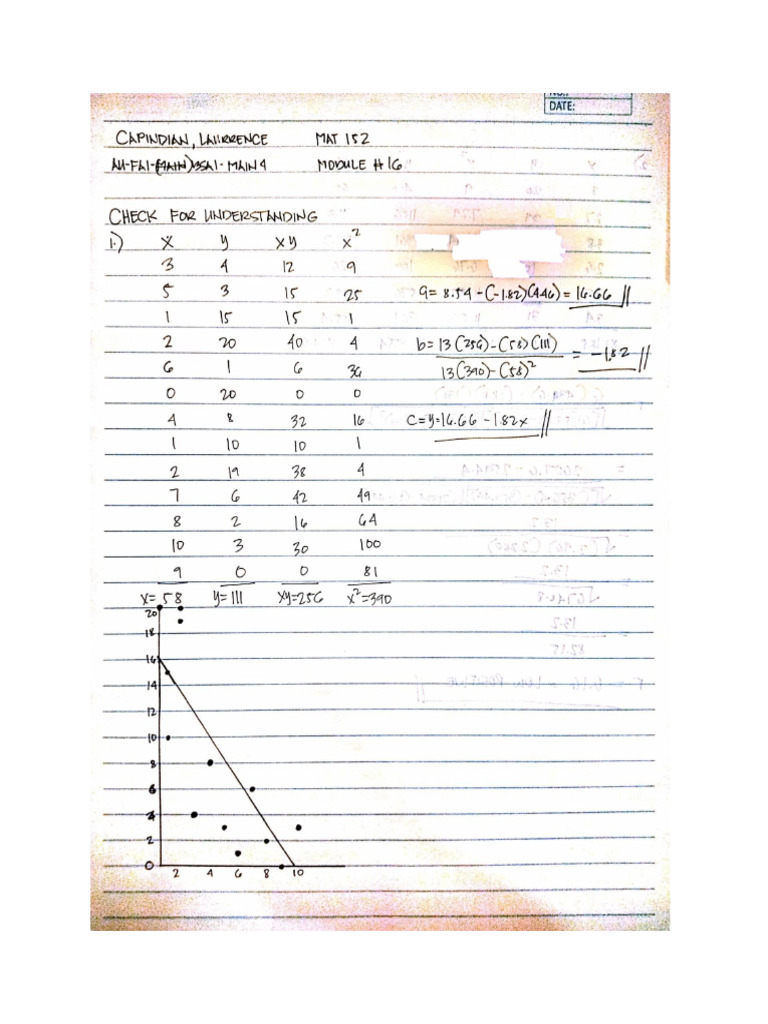 NO.:
DATE:
CAPINDIAN, LAURRENCE MAT 152
MODULE # 16
CHECK FOR UNDERSTANDING
1.) x y xy x²
3 4 12 9
5 3 15 25 a= 8.54 - (-1.82)(4.46) = 16.66 //
1 15 15 1
2 20 40 4 b= 13(256) - (58)(111) / 13(390) - (58)² = -1.82 //
6 1 6 36
0 20 0 0
4 8 32 16 C= y=16.66 - 1.82x //
1 10 10 1
2 19 38 4
7 6 42 49
8 2 16 64
10 3 30 100
9 0 0 81
x= 58 y= 111 xy=256 x²=390
20
18
16
14
12
10
8
6
4
2
0
2 4 6 8 10